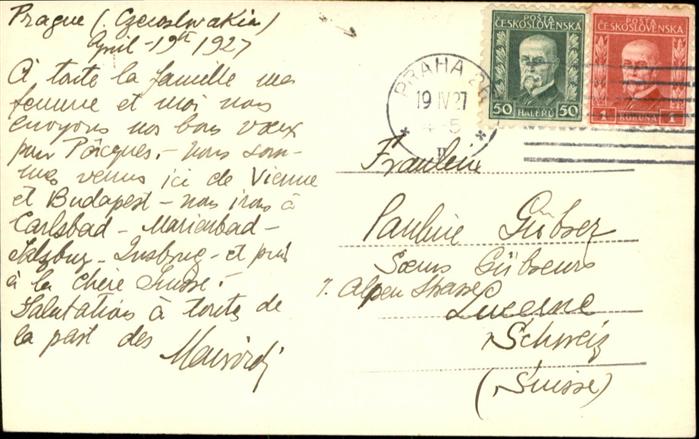 Prague (Czecoslovakia)
April - 19th 1927
A toute la famille ma
femme et moi nous
envoyons nos bons vœux
pour Pâcques. - nous som-
mes venus ici de Vienne
et Budapest - nous irons à
Carlsbad - Marienbad -
Salzburg - Insbruc - et puis
à la Chère Suisse. -
Salutations à toute de
la part des
POSTA
ČESKOSLOVENSKA
50 HALERU 50
POSTA
ČESKOSLOVENSKA
1 KORUNA 1
PRAHA
19 IV 27
4-5
II
Fraulein
Pauline Gübser
Sœurs Gübseurs
7. Alpen Strasse
Lucerne
Schweiz
(Suisse)